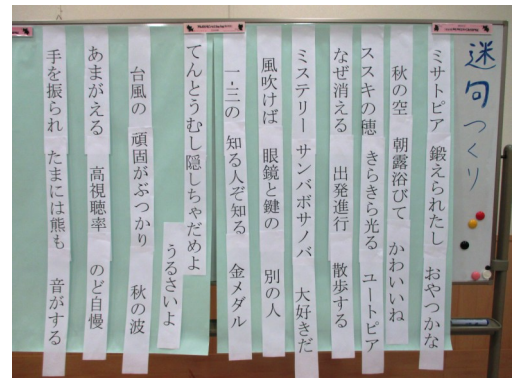 迷句つくり
ミサトピア 鍛えられたし おやつかな
秋の空 朝露浴びて かわいいね
ススキの穂 きらきら光る ユートピア
なぜ消える 出発進行 散歩する
ミステリー サンバボサノバ 大好きだ
風吹けば 眼鏡と鍵の 別の人
一・三の 知る人ぞ知る 金メダル
てんとうむし隠しちゃだめよ うるさいよ
台風の 頑固がぶつかり 秋の波
あまがえる 高視聴率 のど自慢
手を振られ たまには熊も 音がする